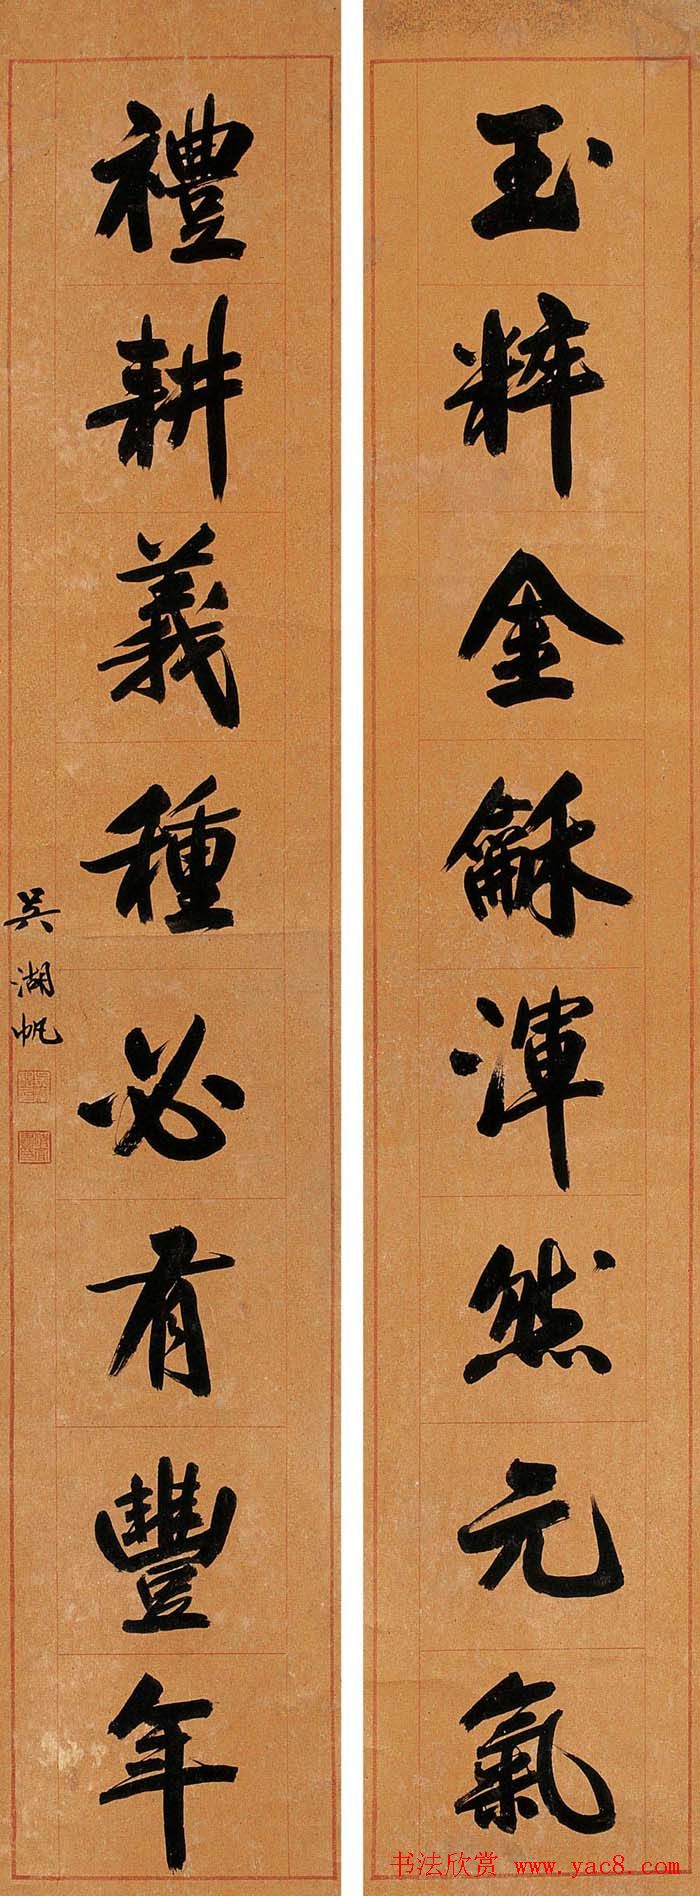 玉粹金龢渾然元氣
禮耕義種必有豐年
吴湖帆
书法欣赏 www.yac8.com